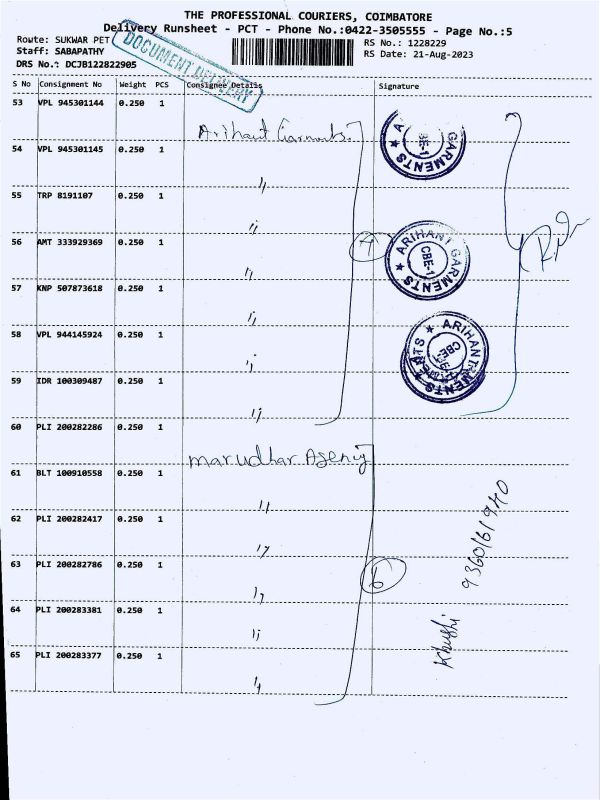 THE PROFESSIONAL COURIERS, COIMBATORE
Delivery Runsheet - PCT - Phone No.:0422-3505555 - Page No.:5
Route: SUKWAR PET
Staff: SABAPATHY
DRS No.: DCJB122822905
DOCUMENT DELIVERY
RS No.: 1228229
RS Date: 21-Aug-2023
S No Consignment No Weight PCS Consignee Details Signature
53 VPL 945301144 0.250 1 Arihant Garments.
54 VPL 945301145 0.250 1 "
55 TRP 8191107 0.250 1 "
56 AMT 333929369 0.250 1 "
57 KNP 507873618 0.250 1 "
58 VPL 944145924 0.250 1 "
59 IDR 100309487 0.250 1 "
7
ARIHANT GARMENTS ★
CBE-1
ARIHANT GARMENTS ★
CBE-1
60 PLI 200282286 0.250 1 marudhar Agency
61 BLT 100910558 0.250 1 "
62 PLI 200282417 0.250 1 "
63 PLI 200282786 0.250 1 "
64 PLI 200283381 0.250 1 "
65 PLI 200283377 0.250 1 "
6
Khushi